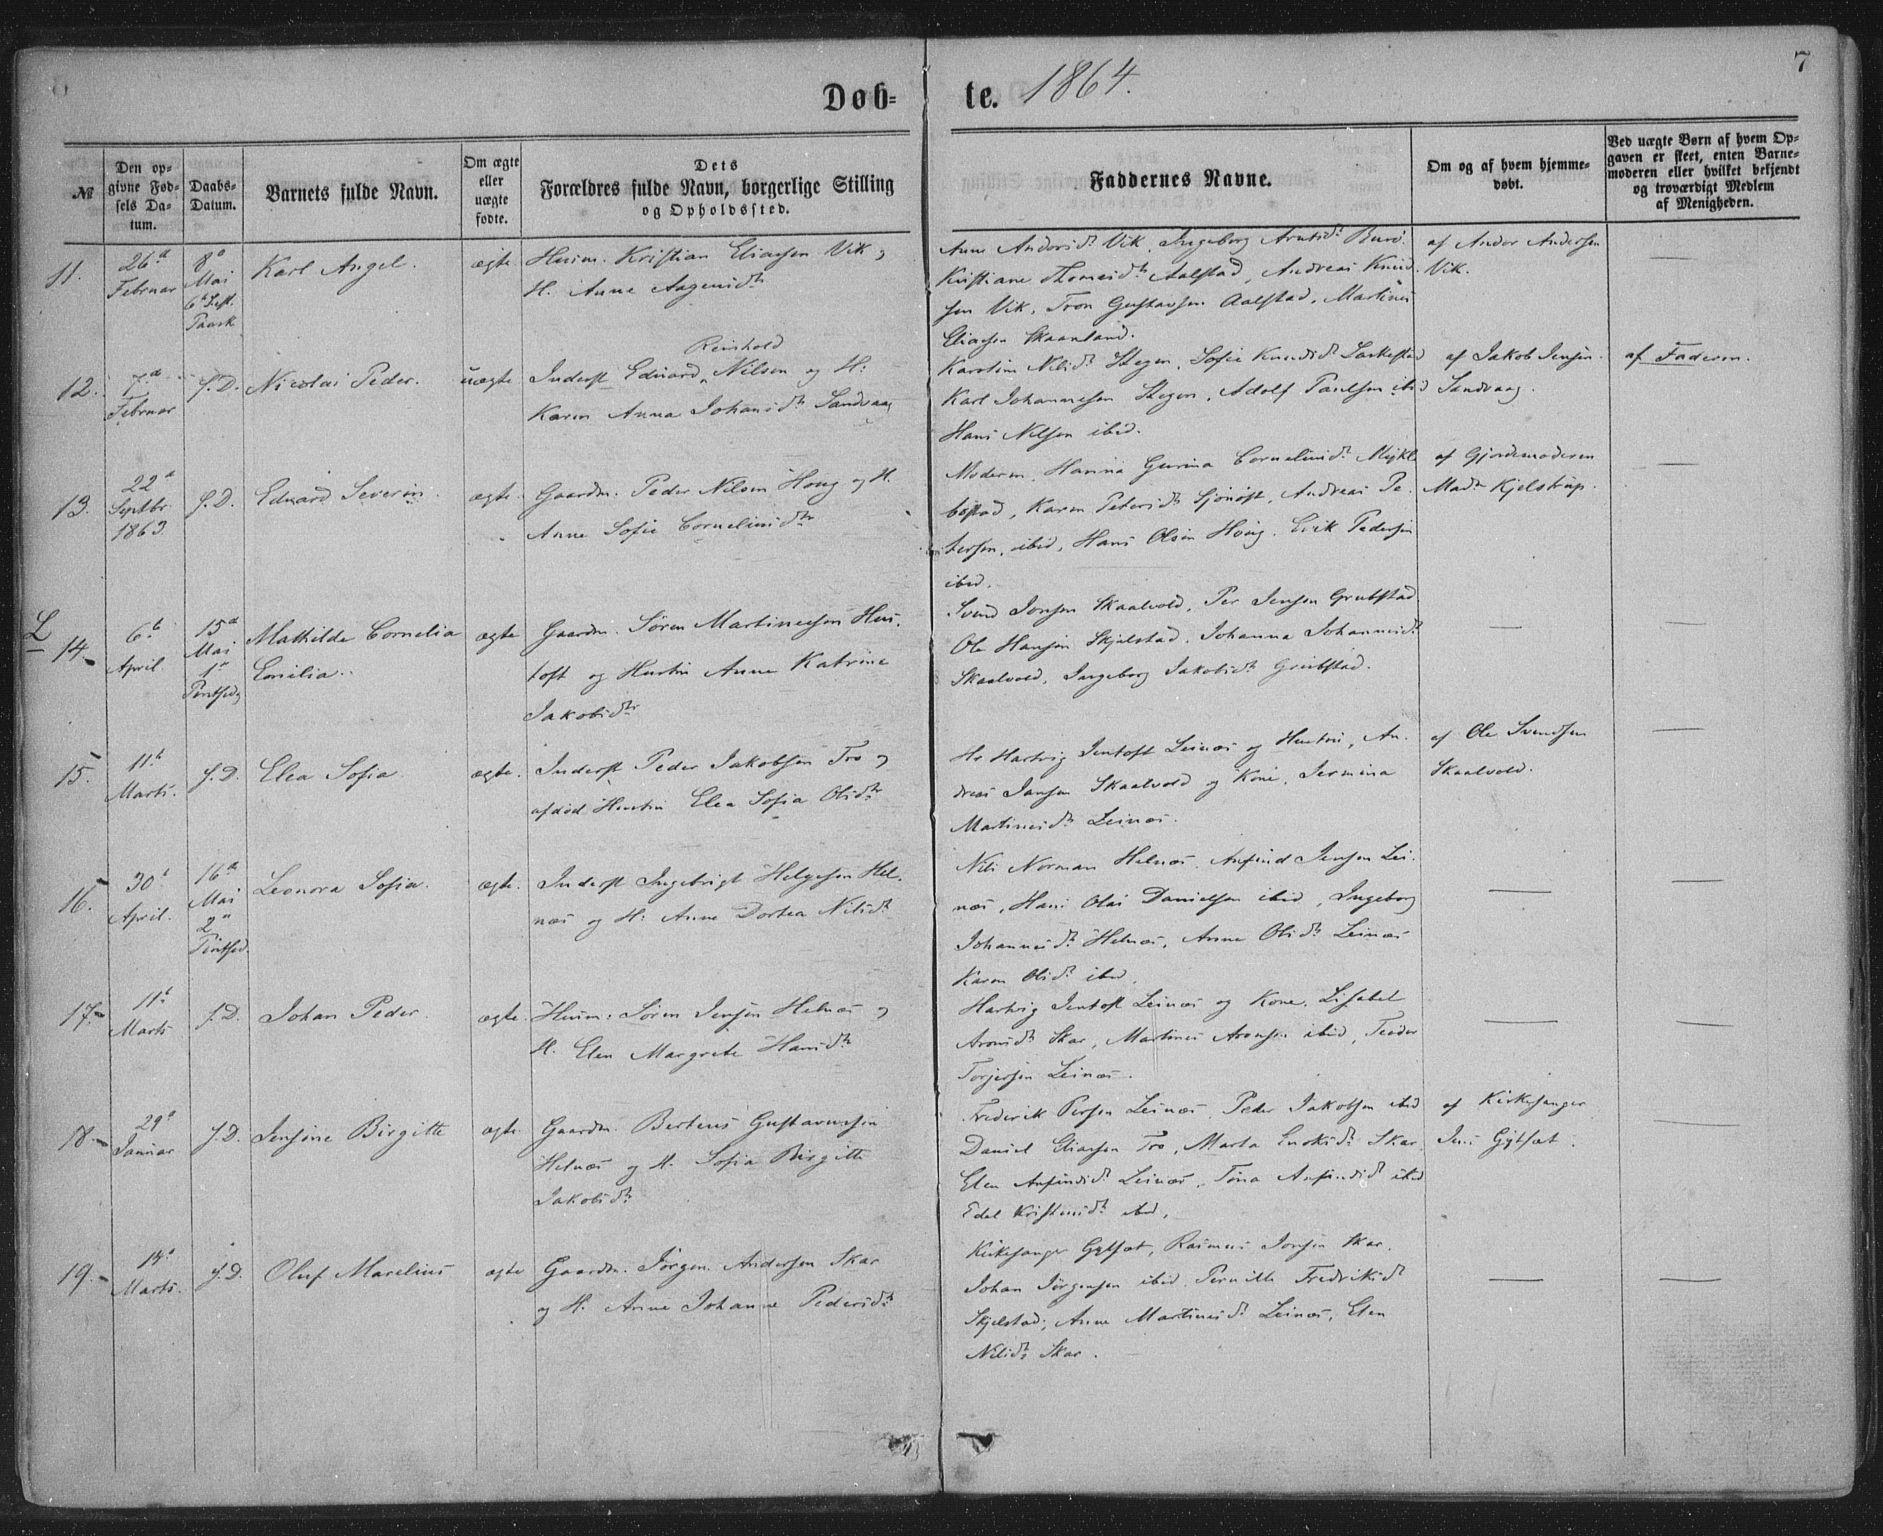 7
Døb-
te. 1864.
№
Den op-
givne Fød-
sels Da-
tum.
Daabs-
Datum.
Barnets fulde Navn.
Om ægte
eller
uægte
fødte.
Dets
Forældres fulde Navn, borgerlige Stilling
og Opholdssted.
Faddernes Navne.
Om og af hvem hjemme-
døbt.
Ved uægte Børn af hvem Op-
gaven er skeet, enten Barne-
moderen eller hvilket bekjendt
og troværdigt Medlem
af Menigheden.
11.
26de
Februar
8de
Mai
Paask
Karl Angel.
ægte
Huusm. Kristian Eliassen Vik og
H. Anne Aagensdtr
Anne Andorsdr Vik, Ingeborg Arntsdr
Kristiane Thomesdtr Aalstad, Andreas Knud-
sen Vik, Tron Gustavsen Aalstad, Martinus
Eliassen Skaanland.
af Andor Andersen
Vik.
12.
7de
Februar
s.D.
Nicolai Peder.
uægte
Reinhold
Inderst Eduard Nilsen og H:
Karen Anna Johansdtr Sandvaag
Karoline Nelsdr Stegen, Sofie Knudsdr
Karl Johannesen Stegen, Adolf Paulsen ibid
Hans Nelsen ibid.
af Jakob Jensen
Sandvaag.
af Faderen.
13.
22de
Septbr.
1863
s.D.
Eduard Severin.
ægte.
Gaardm. Peder Nilsen Houg og H.
Anne Sofie Corneliusdtr
Moderen, Hanna Gurina Corneliusdr Mykle-
bostad, Karen Petersdr Sjønøst, Andreas Pe-
tersen, ibid, Hans Olsen Houg. Erik Pedersen
ibid.
af Gjordemoderen
Madm Kjelstrup.
L
14.
6te
April
15de
Mai
1ste
Pintsedag
Mathilde Cornelia
Emilia.
ægte
Gaardm. Søren Martinussen Hus-
toft og Hustru Anne Katrine
Jakobsdtr
Svend Jonsen Skaalvold, Per Jensen Grubstad
Ole Hansen Skjelstad, Johanna Johannesdr
Skaalvold, Ingeborg Jakobsdr Grubstad.
15.
11te
Marts.
s.D.
Elea Sofia.
ægte.
Inderst Peder Jakobsen Tro og
afdød Hustru Elea Sofia Olsdtr
Hr Hartvig Jentoft Leinæs og Hustru, An-
dreas Jansen Skaalvold og Kone, Jermina
Martinusdr Leinæs.
af Ole Svendsen
Skaalvold.
16.
30te
April.
16de
Mai
2den
Pintsed.
Leonora Sofia.
ægte.
Inderst Ingebrigt Helgesen Hel-
næs og H. Anne Dortea Nilsdr
Nils Norman Helnæs, Anfind Jensen Lei-
næs, Hans Olai Danielsen ibid, Ingeborg
Johannesdr Helnæs, Anne Olsdr Leinæs
Karen Olsdr ibid.
17.
11te
Marts
s.D.
Johan Peder.
ægte.
Huusm: Søren Jensen Helnæs og
H. Elen Margrete Hansdtr
Hartvig Jentoft Leinæs og Kone, Lisabet
Aronsdr Skar, Martinus Aronsen ibid, Teodor
Torjersen Leinæs.
18.
29de
Januar
s.D.
Jensine Birgitte
ægte
Gaardm. Berteus Gustavussen
Helnæs og H. Sofia Birgitte
Jakobsdtr
Frederik Persen Leinæs, Peder Jakobsen ibid
Daniel Eliassen Tro, Marta Enoksdr Skar,
Elen Anfindsdr Leinæs, Tona Anfindsdr ibid
Edel Kristensdr ibid.
af Kirkesanger
Jens Gylset.
19.
14de
Marts.
s.D.
Oluf Marelius
ægte
Gaardm. Jørgen Andersen Skar
og H. Anne Johanne Pedersdtr
Kirkesanger Gylset, Rasmus Jonsen Skar,
Johan Jørgensen ibid, Pernille Fredriksdr
Skjelstad, Anne Martinusdr Leinæs, Elen
Nelsdr Skar.